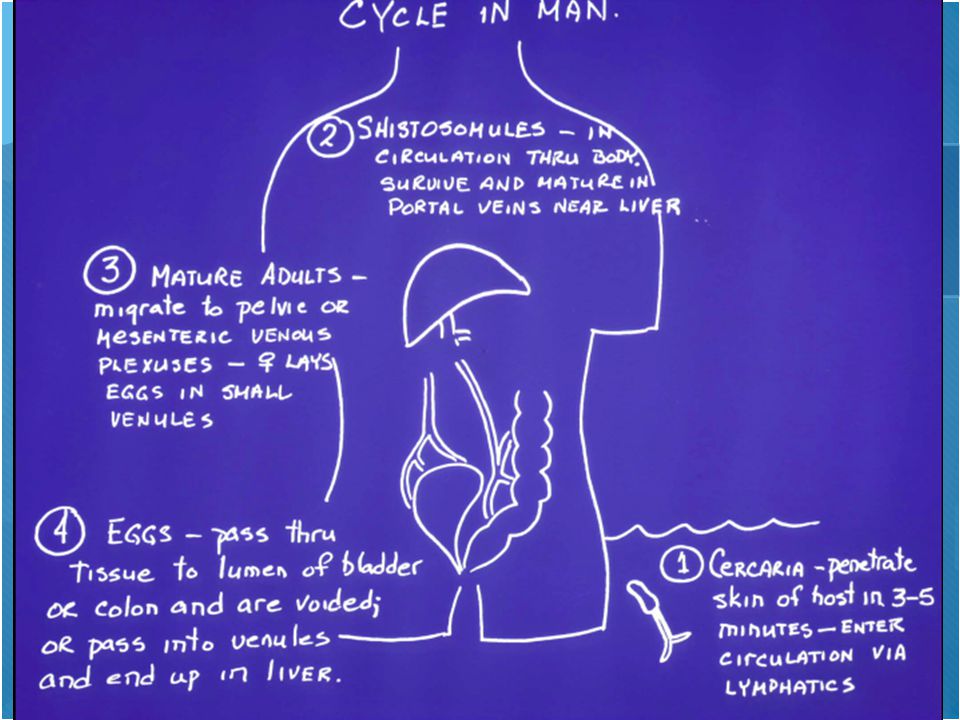 CYCLE IN MAN.
② SHISTOSOMULES – IN
CIRCULATION THRU BODY.
SURVIVE AND MATURE IN
PORTAL VEINS NEAR LIVER
③ MATURE ADULTS –
migrate to pelvic OR
MESENTERIC VENOUS
PLEXUSES – ♀ LAYS
EGGS IN SMALL
VENULES
④ EGGS – pass thru
TISSUE to lumen of bladder
OR colon and are voided;
OR pass into venules
and end up in LIVER.
① CERCARIA – penetrate
skin of host in 3-5
MINUTES – ENTER
CIRCULATION VIA
LYMPHATICS